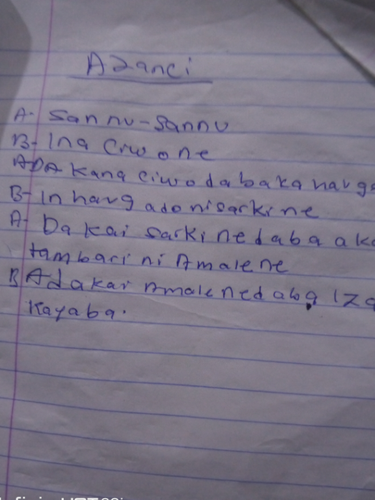 Azanci
A- Sannu-Sannu
B- Ina Ciwo ne
A- DA kana ciwo da baka harga
B- In harga do ni sarki ne
A- Da kai sarki ne da ba a ka
tambaci ni Amale ne
B A da kai Amale ne da aba Iza
Kayaba.